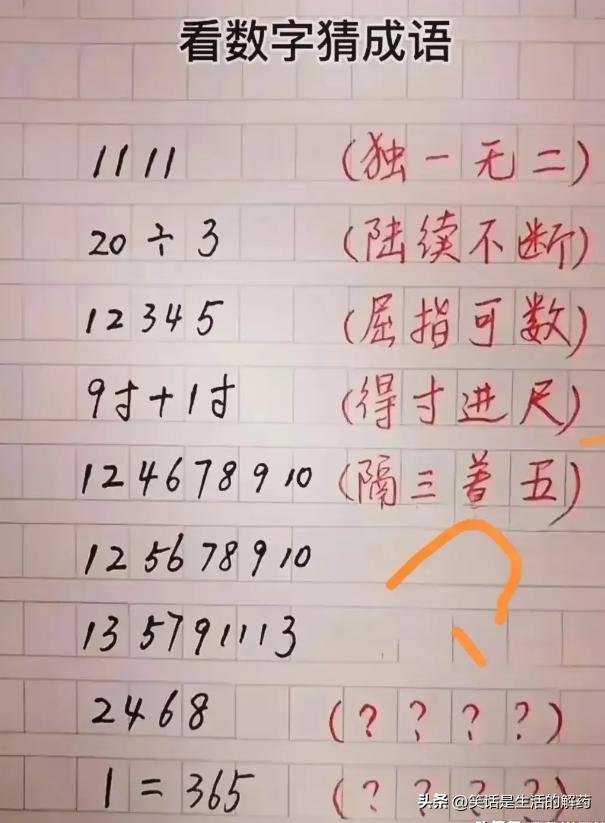 看数字猜成语
1111 (独一无二)
20÷3 (陆续不断)
12345 (屈指可数)
9寸+1寸 (得寸进尺)
124678910 (隔三差五)
125678910
135791113
2468 (????)
1=365 (????)
头条 @笑话是生活的解药